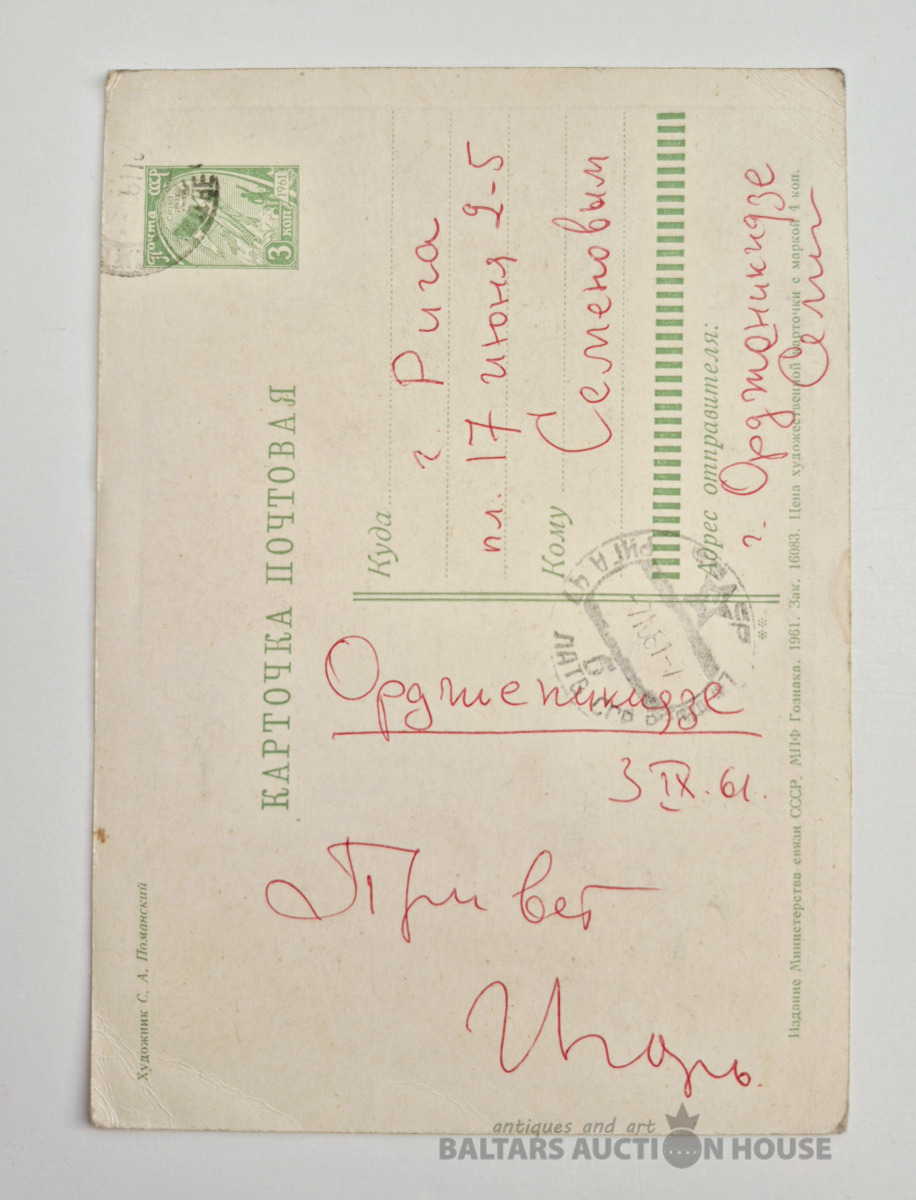 Художник С. А. Поманский
КАРТОЧКА ПОЧТОВАЯ
Почта СССР
1961
3 коп
Орджоникидзе
3 IX. 61.
Привет
Игорь
Куда
г. Рига
пл. 17 июня 2-5
Кому
Семеновым
Адрес отправителя:
г. Орджоникидзе
РИГА
Издание Министерства связи СССР. МПФ Гознака. 1961. Зак. 16083. Цена художественной карточки с маркой 4 коп.
antiques and art
BALTARS AUCTION HOUSE